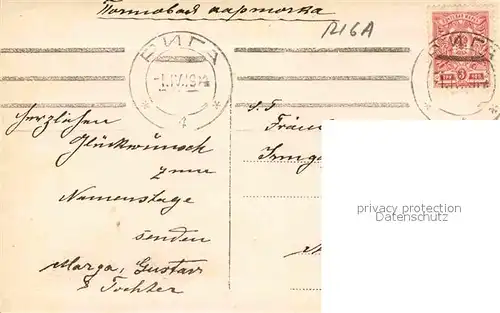 Почтовая карточка
RIGA
РИГА
herzlichen
Glückwunsch
zum
Namenstage
senden
Marga, Gustav
& Tochter
S. T.
Fräul
Irmga
privacy protection
Datenschutz